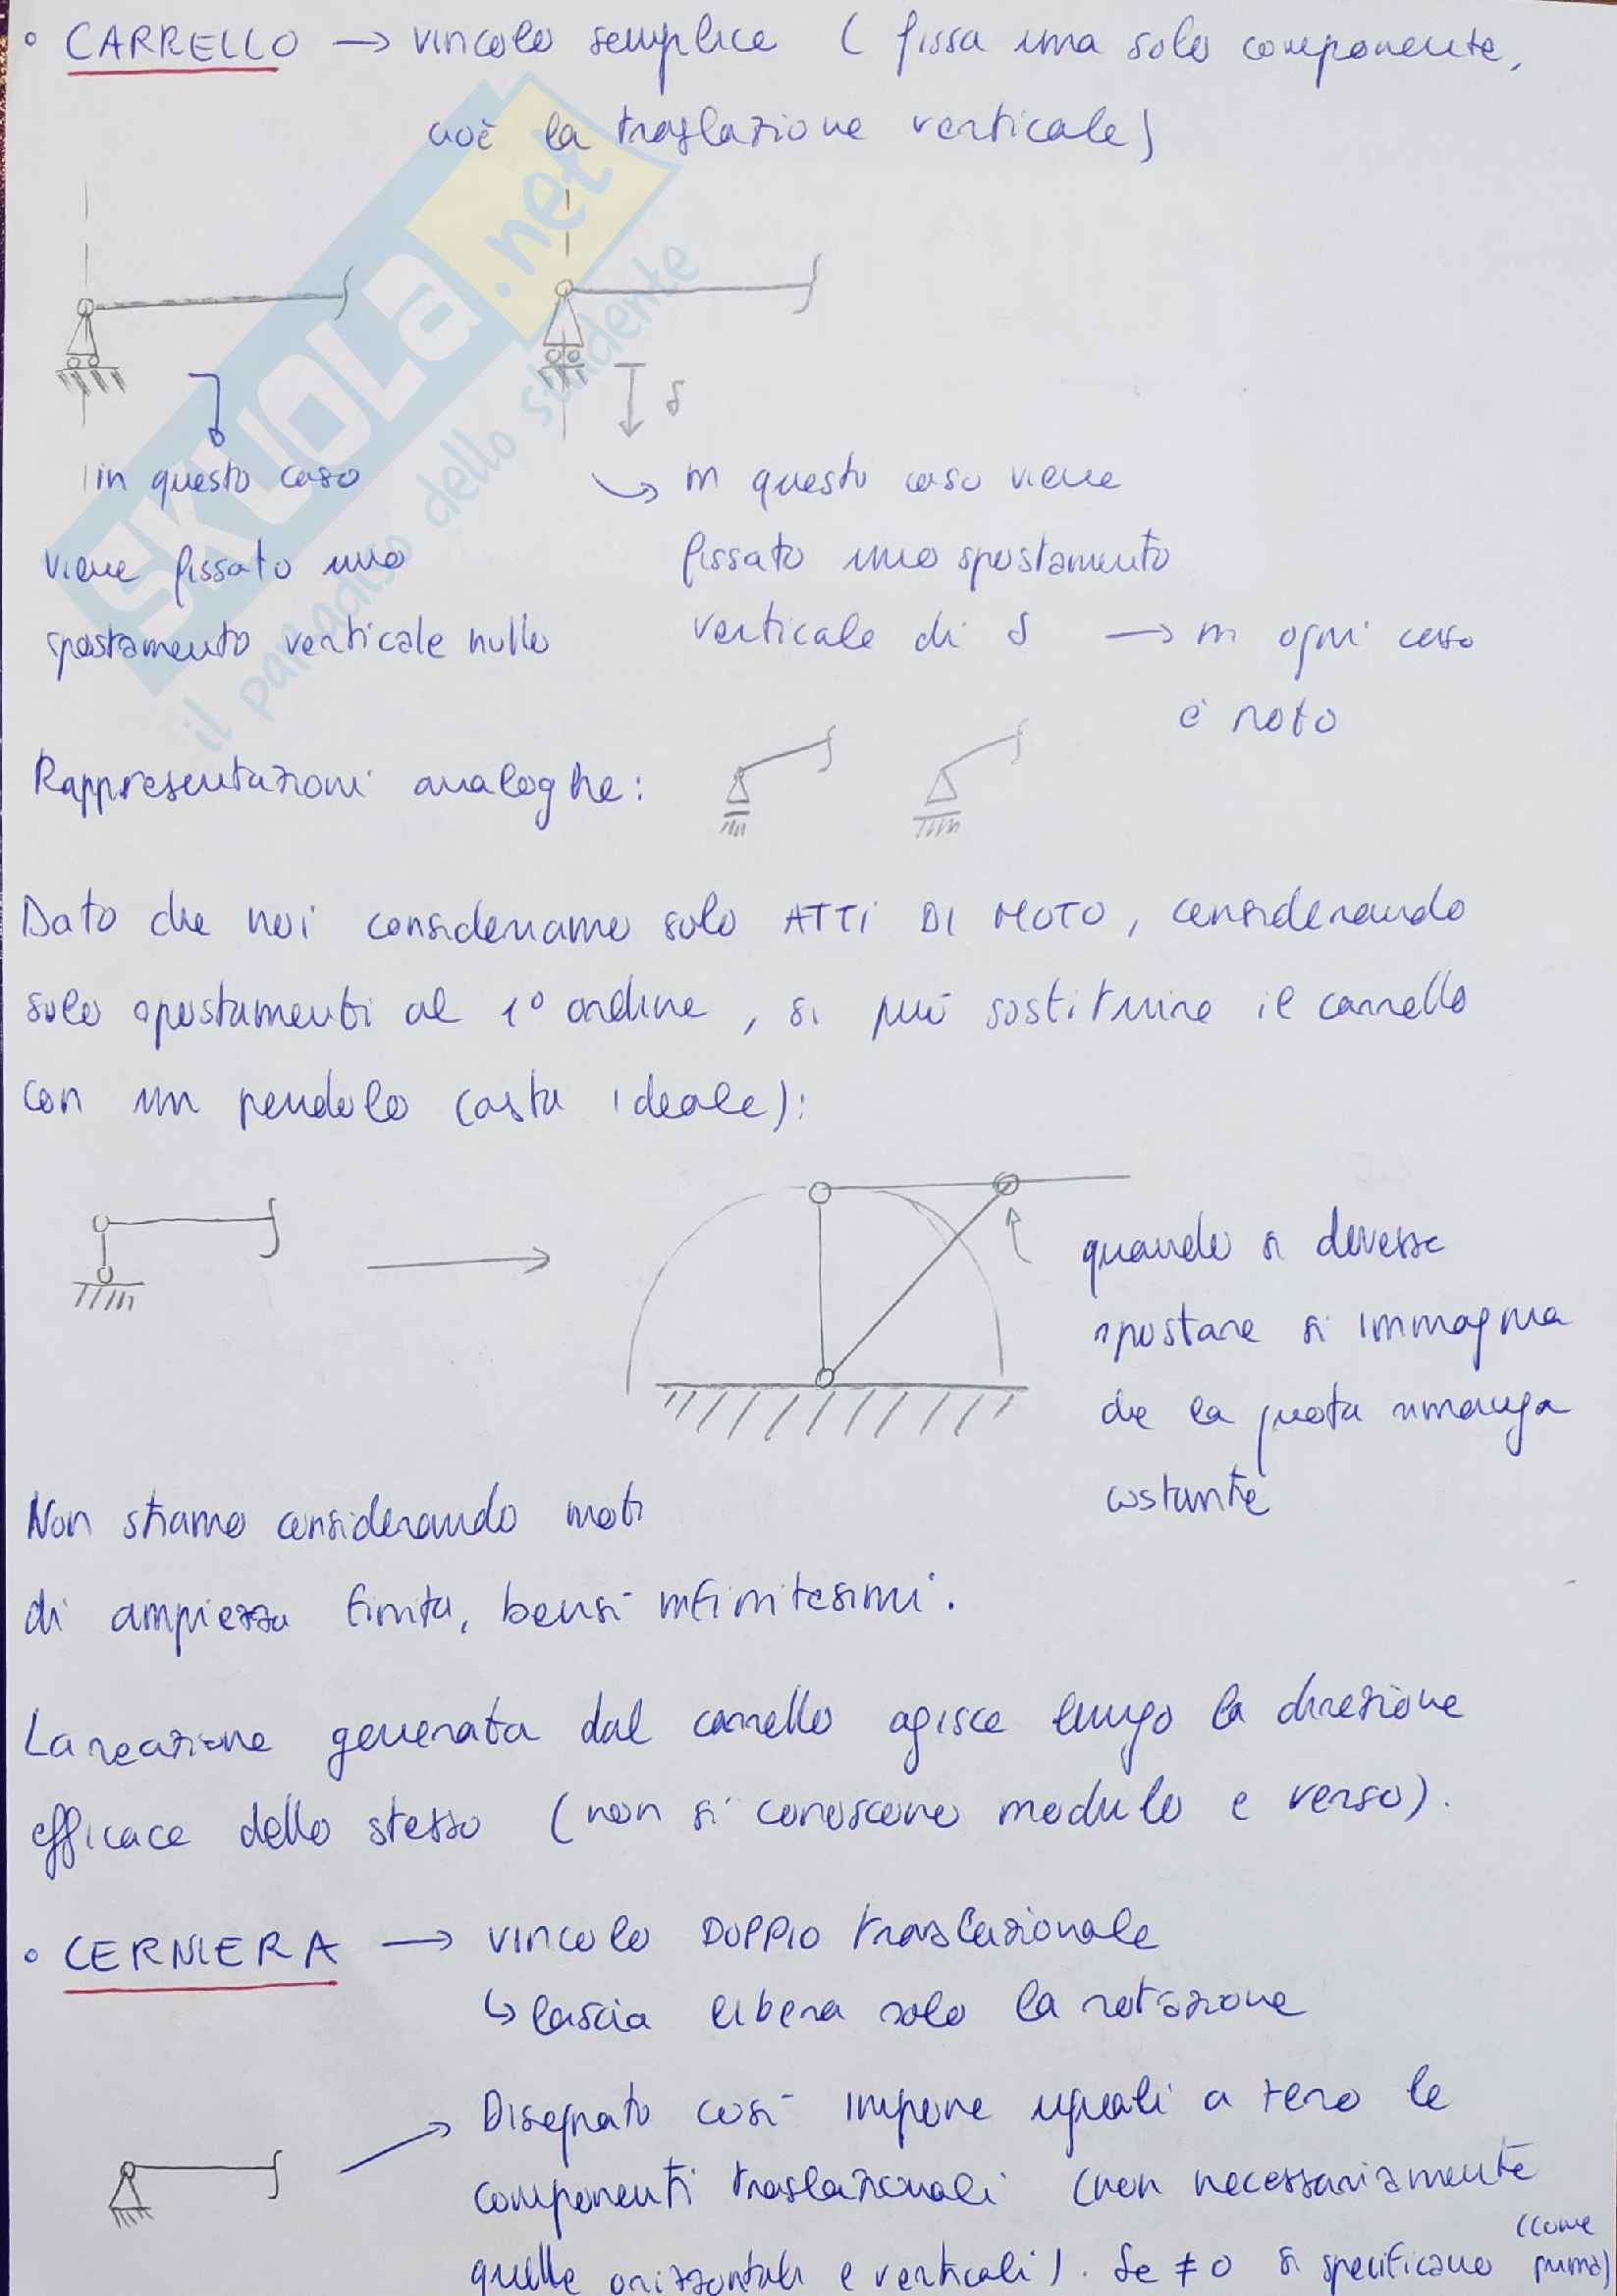 • CARRELLO → vincolo semplice ( fissa una sola componente,
cioè la traslazione verticale)
SKUOLA.net
il paradiso dello studente
δ
in questo caso
viene fissato uno
spostamento verticale nullo
↳ in questo caso viene
fissato uno spostamento
verticale di δ → in ogni caso
è noto
Rappresentazioni analoghe:
Dato che noi consideriamo solo ATTI DI MOTO, considerando
solo spostamenti al 1° ordine, si può sostituire il carrello
con un pendolo (asta ideale):
quando si dovesse
spostare si immagina
che la quota rimanga
costante
Non stiamo considerando moti
di ampiezza finita, bensì infinitesimi.
La reazione generata dal carrello agisce lungo la direzione
efficace dello stesso (non si conoscono modulo e verso).
• CERNIERA → vincolo DOPPIO traslazionale
↳ lascia libera solo la rotazione
Disegnato così impone uguali a zero le
componenti traslazionali (non necessariamente
quelle orizzontali e verticali). Se ≠ 0 si specificano (come
prima)